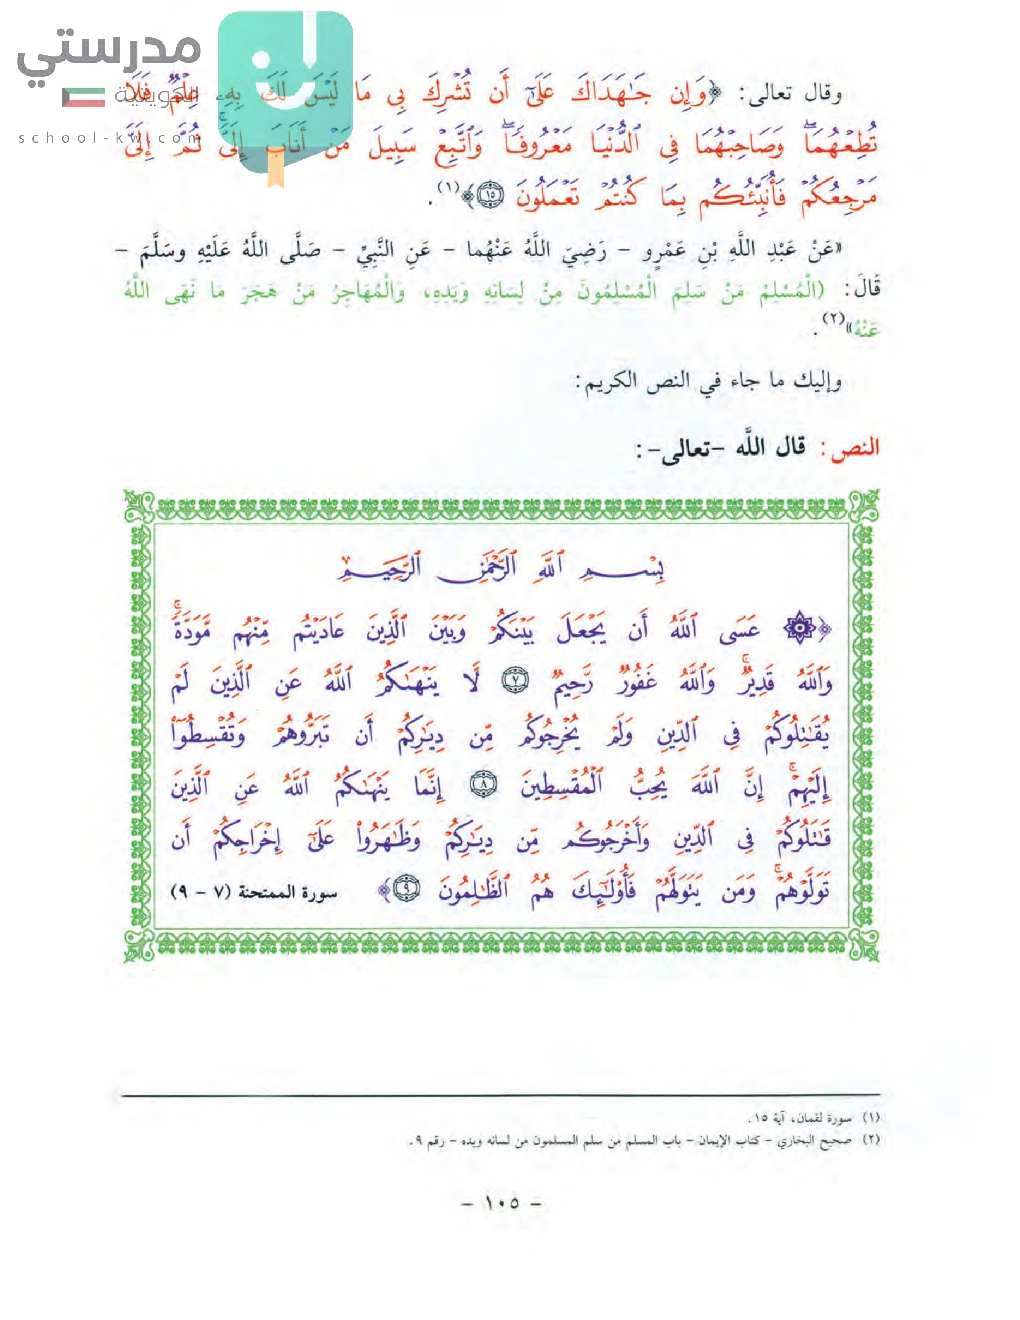 مدرستي
الكويتية
school-kw.com
وقال تعالى: ﴿وَإِن جَٰهَدَاكَ عَلَىٰٓ أَن تُشْرِكَ بِى مَا لَيْسَ لَكَ بِهِۦ عِلْمٌ فَلَا
تُطِعْهُمَا ۖ وَصَاحِبْهُمَا فِى ٱلدُّنْيَا مَعْرُوفًا ۖ وَٱتَّبِعْ سَبِيلَ مَنْ أَنَابَ إِلَىَّ ۚ ثُمَّ إِلَىَّ
مَرْجِعُكُمْ فَأُنَبِّئُكُم بِمَا كُنتُمْ تَعْمَلُونَ ١٥﴾(١).
«عَنْ عَبْدِ اللَّهِ بْنِ عَمْرٍو - رَضِيَ اللَّهُ عَنْهُما - عَنِ النَّبِيِّ - صَلَّى اللَّهُ عَلَيْهِ وسَلَّمَ -
قَالَ: (الْمُسْلِمُ مَنْ سَلِمَ الْمُسْلِمُونَ مِنْ لِسَانِهِ وَيَدِهِ، وَالْمُهَاجِرُ مَنْ هَجَرَ مَا نَهَى اللَّهُ
عَنْهُ»(٢).
وإليك ما جاء في النص الكريم:
النص: قال اللَّه -تعالى-:
بِسْمِ ٱللَّهِ ٱلرَّحْمَٰنِ ٱلرَّحِيمِ
﴿۞ عَسَى ٱللَّهُ أَن يَجْعَلَ بَيْنَكُمْ وَبَيْنَ ٱلَّذِينَ عَادَيْتُم مِّنْهُم مَّوَدَّةً ۚ
وَٱللَّهُ قَدِيرٌ ۚ وَٱللَّهُ غَفُورٌ رَّحِيمٌ ٧ لَّا يَنْهَىٰكُمُ ٱللَّهُ عَنِ ٱلَّذِينَ لَمْ
يُقَٰتِلُوكُمْ فِى ٱلدِّينِ وَلَمْ يُخْرِجُوكُم مِّن دِيَٰرِكُمْ أَن تَبَرُّوهُمْ وَتُقْسِطُوٓا۟
إِلَيْهِمْ ۚ إِنَّ ٱللَّهَ يُحِبُّ ٱلْمُقْسِطِينَ ٨ إِنَّمَا يَنْهَىٰكُمُ ٱللَّهُ عَنِ ٱلَّذِينَ
قَٰتَلُوكُمْ فِى ٱلدِّينِ وَأَخْرَجُوكُم مِّن دِيَٰرِكُمْ وَظَٰهَرُوا۟ عَلَىٰٓ إِخْرَاجِكُمْ أَن
تَوَلَّوْهُمْ ۚ وَمَن يَتَوَلَّهُمْ فَأُو۟لَٰٓئِكَ هُمُ ٱلظَّٰلِمُونَ ٩﴾ سورة الممتحنة (٧ - ٩)
(١) سورة لقمان، آية ١٥.
(٢) صحيح البخاري - كتاب الإيمان - باب المسلم من سلم المسلمون من لسانه ويده - رقم ٩.
- ١٠٥ -